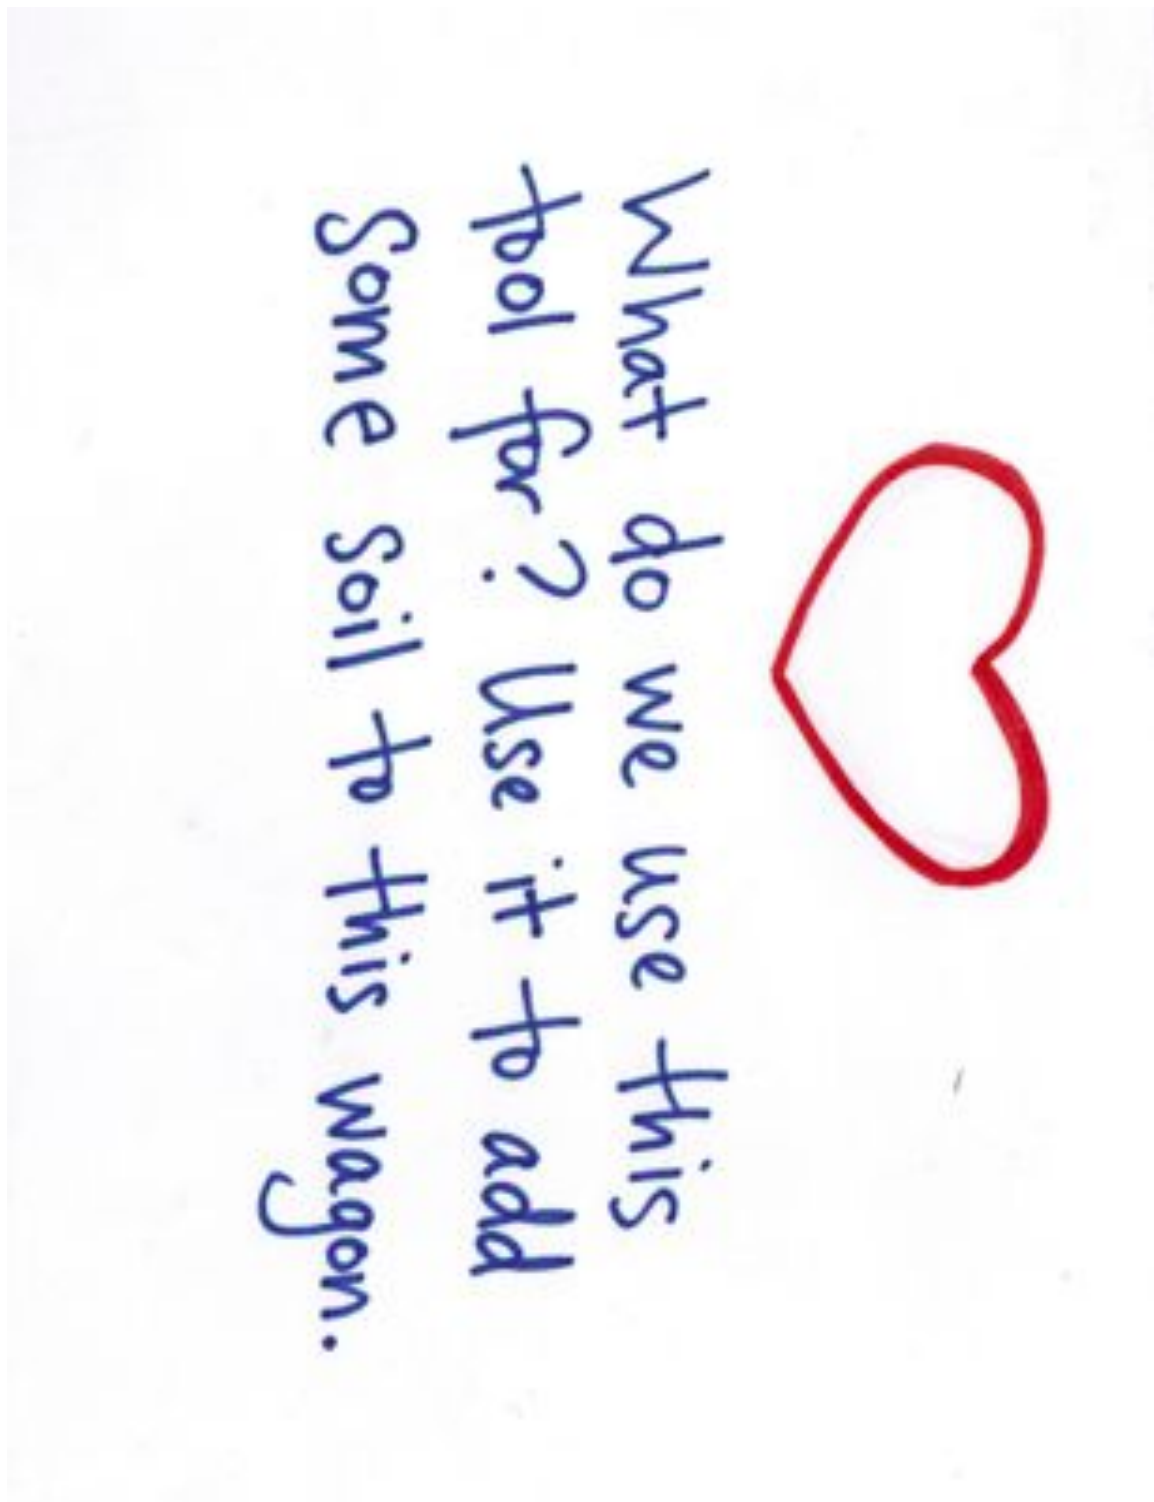 What do we use this
tool for? Use it to add
Some soil to this wagon.